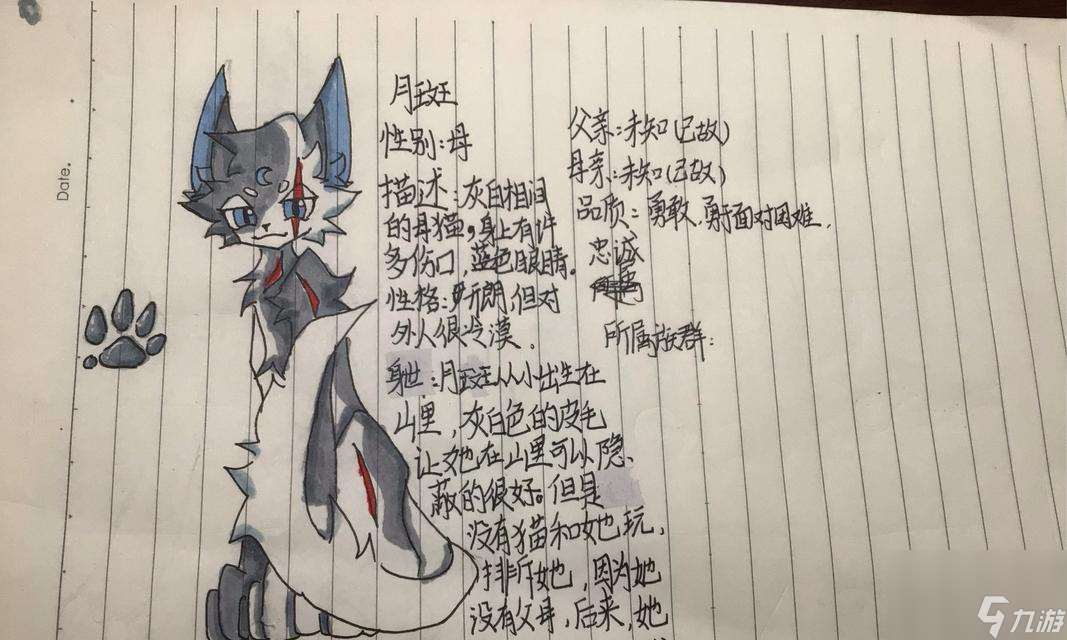 Date.
月斑
性别:母
描述:灰白相间
的母猫,身上有许
多伤口,蓝色眼睛。
性格:开朗,但对
外人很冷漠.
身世:月斑从小出生在
山里,灰白色的皮毛
让她在山里可以隐
蔽的很好。但是
没有猫和她玩,
排斥她,因为她
没有父母,后来,她
父亲:未知(已故)
母亲:未知(已故)
品质:勇敢.勇于面对困难.
忠诚
所属族群:
九游